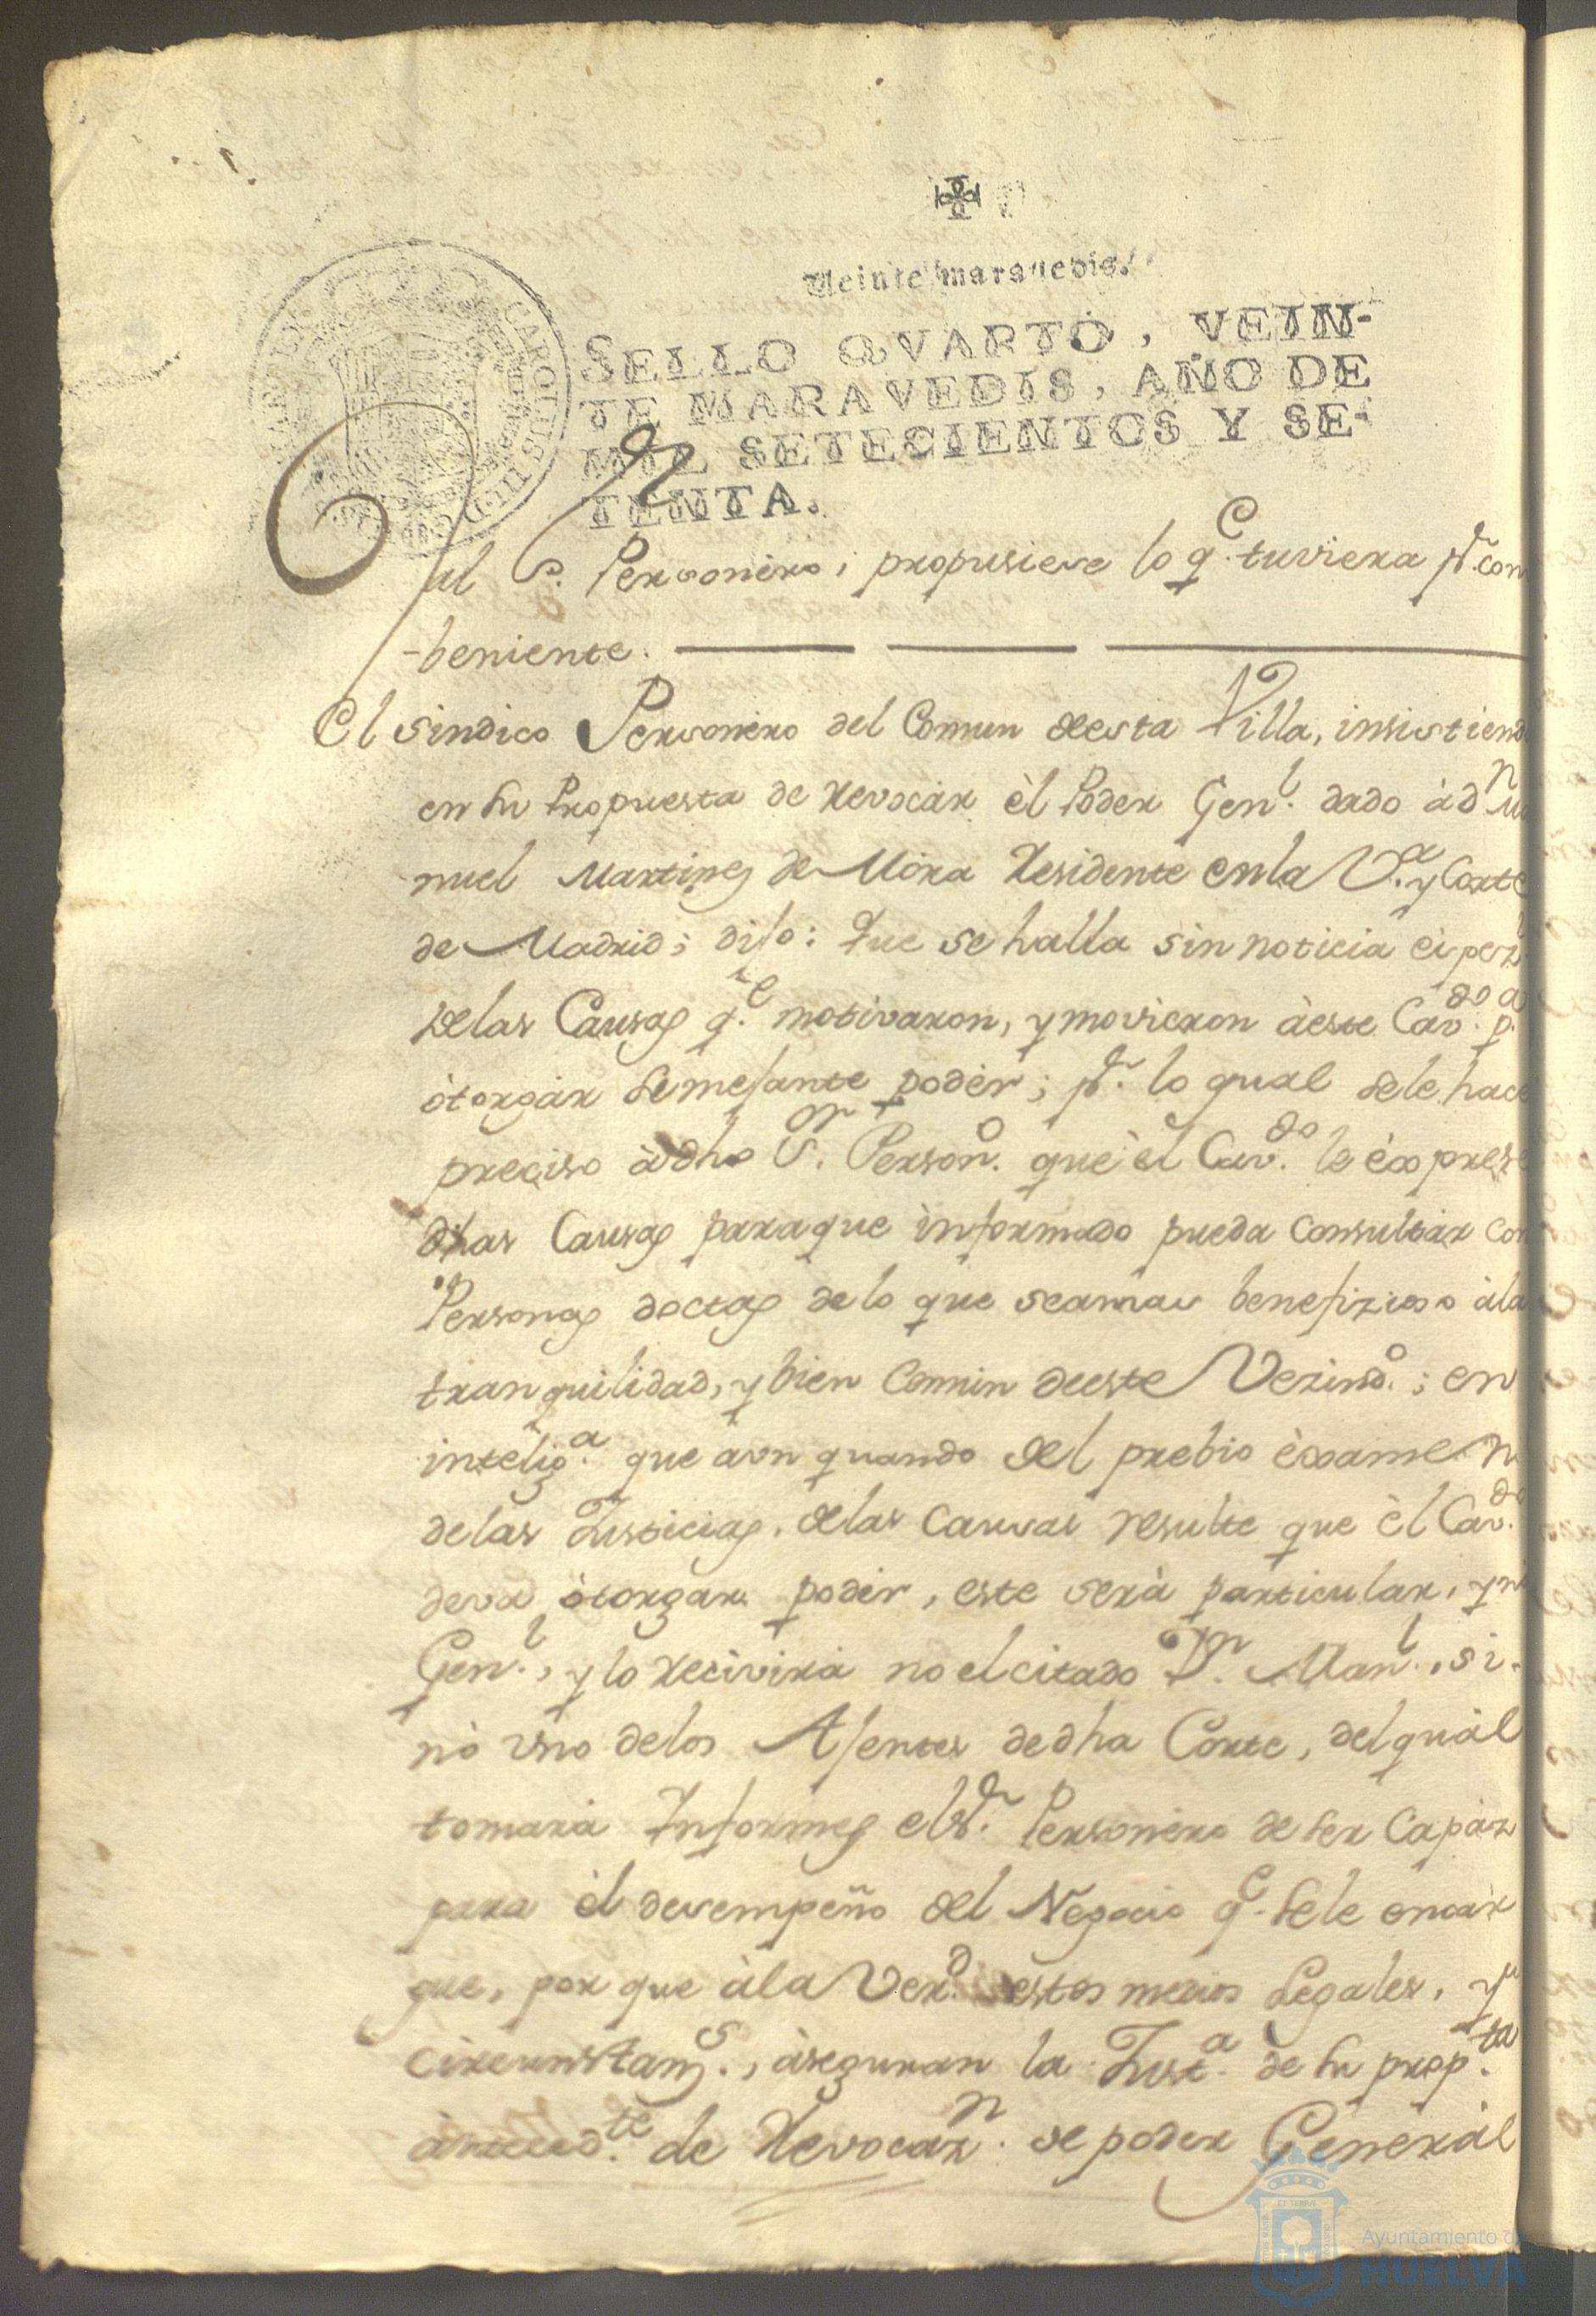 Veinte maravedis.
SELLO QVARTO, VEIN-
TE MARAVEDIS, AÑO DE
MIL SETECIENTOS Y SE-
TENTA.
CAROLUS III D G
al Sr. Personero, propusiese lo qe. tuviera pr. con
-beniente.
El sindico Personero del Comun desta Villa, insistiend
en su Propuesta de revocàr èl Poder Genl. dado à dn
nuel Martinez de Mora residente en la Va. y Corte
de Madrid; dijo: Que se halla sin noticia
delas Causas qe. motivaron, y movieron àeste Cavdo. pa
òtorgàr semejante podèr; pr. lo qual sele hace
preciso àdho Sor. Persono. que èl Cavdo. le èxprese
dhas Causas paraque ìnformado pueda Consultàr con
Personas doctas delo que seamas benefizioso àla
tranquilidad, y bien Comun deeste Vezindo.; en
inteliga. que aun quando del prebio èxamen
delas Justicias, delas Causas resulte que èl Cavdo.
deva òtorgar podèr, este serà particular, y no
Genl., y lo recivirà no elcitado Dn. Manl., si-
nò uno delos Ajentes dedha Corte, delquàl
tomarà Informes elSr. Personero de ser Capàz
para èl desempeño del Negocio qe. sele encàr
gue, por que àla Verd. estos medios Legales, y
circunstanzs., àseguran la Justa. de su propta.
àntecedte. de revocazn. se poder Generàl
Ayuntamiento de
HUELVA